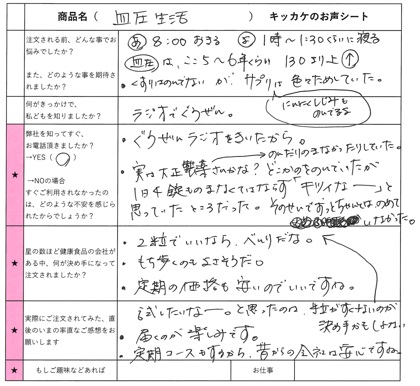 商品名（ 血圧生活 ） キッカケのお声シート
注文される前、どんな事でお
悩みでしたか？
また、どのような事を期待さ
れましたか？
あ 8:00 おきる よ 1時〜1:30くらいに寝る
血圧は、ここ5〜6年くらい 130より上 ↑
・くすりはのんでない が、サプリは色々ためしていた。
にんにくしじみも
のんでるよ
何がきっかけで、
私どもを知りましたか？
ラジオでぐうぜん。
★
弊社を知ってすぐ、
お電話頂きましたか？
→YES（ ○ ）
→NOの場合
すぐご利用されなかったの
は、どのような不安を感じら
れたからでしょうか？
・ぐうぜんラジオをきいたから。
→のんだりのまなかったりしていた。
・実は大正製薬さんかな？どこかのをのんでいたが
1日4錠ものまなくてはならず「キツイなー」と
思っていたところだった。そのせいでずっとちゃんとはのめて
いなかった。
★
星の数ほど健康食品の会社が
ある中、何が決め手になって
注文されましたか？
・2粒でいいなら、べんりだな。
・もち歩くのもよさそうだ。
・定期の価格も安いのでいいですね。
★
実際にご注文されてみた、直
後のいまの率直なご感想をお
願いします
・試したいなー。と思ったのは、粒がすくないのが
決め手かもしれない
・届くのが楽しみです。
・定期コースもするから、昔からの会社は安心ですね。
★
もしご趣味などあれば
お仕事